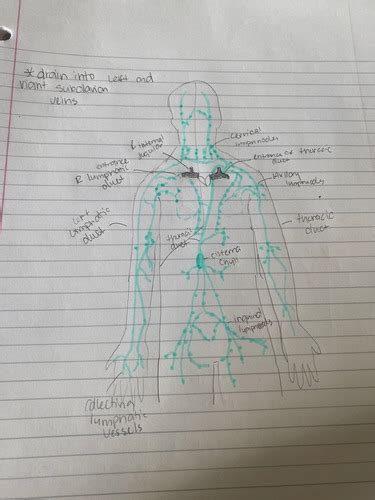 * drain into left and
right subclavian
veins
L internal
jugular
cervical
lymph nodes
entrance
R lymphatic
duct
entrance of thoracic
duct
axillary
lymph nodes
left
lymphatic
duct
thoracic
duct
thoracic
duct
cisterna
chyli
inguinal
lymph nodes
collecting
lymphatic
vessels